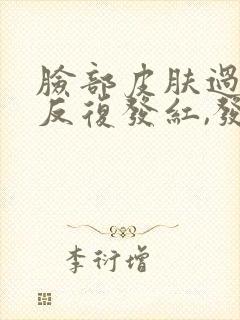 臉部皮膚過
反復發紅,發
李衍增